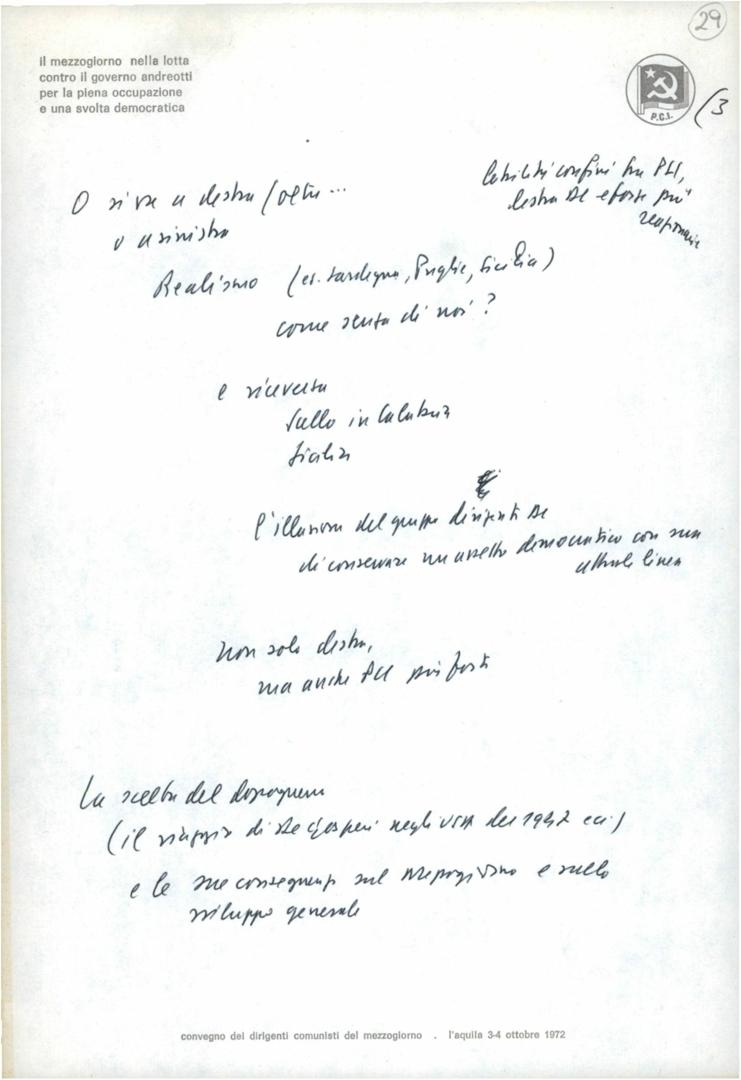 29
il mezzogiorno nella lotta
contro il governo andreotti
per la piena occupazione
e una svolta democratica
P.C.I.
(3
O si va a destra (oltre ...
o a sinistra
confini fra PLI,
destra DC e forse più
Realismo (es. Sardegna, Puglie, Sicilia)
come senza di noi?
e viceversa
Sullo in Calabria
Sicilia
l'illusione del gruppo dirigente DC
di conservare un assetto democratico con una
linea
Non solo destra,
ma anche PCI più forte
La scelta del dopoguerra
(il viaggio di De Gasperi negli USA del 1947 ecc.)
e le sue conseguenze sul Mezzogiorno e sullo
sviluppo generale
convegno dei dirigenti comunisti del mezzogiorno . l'aquila 3-4 ottobre 1972